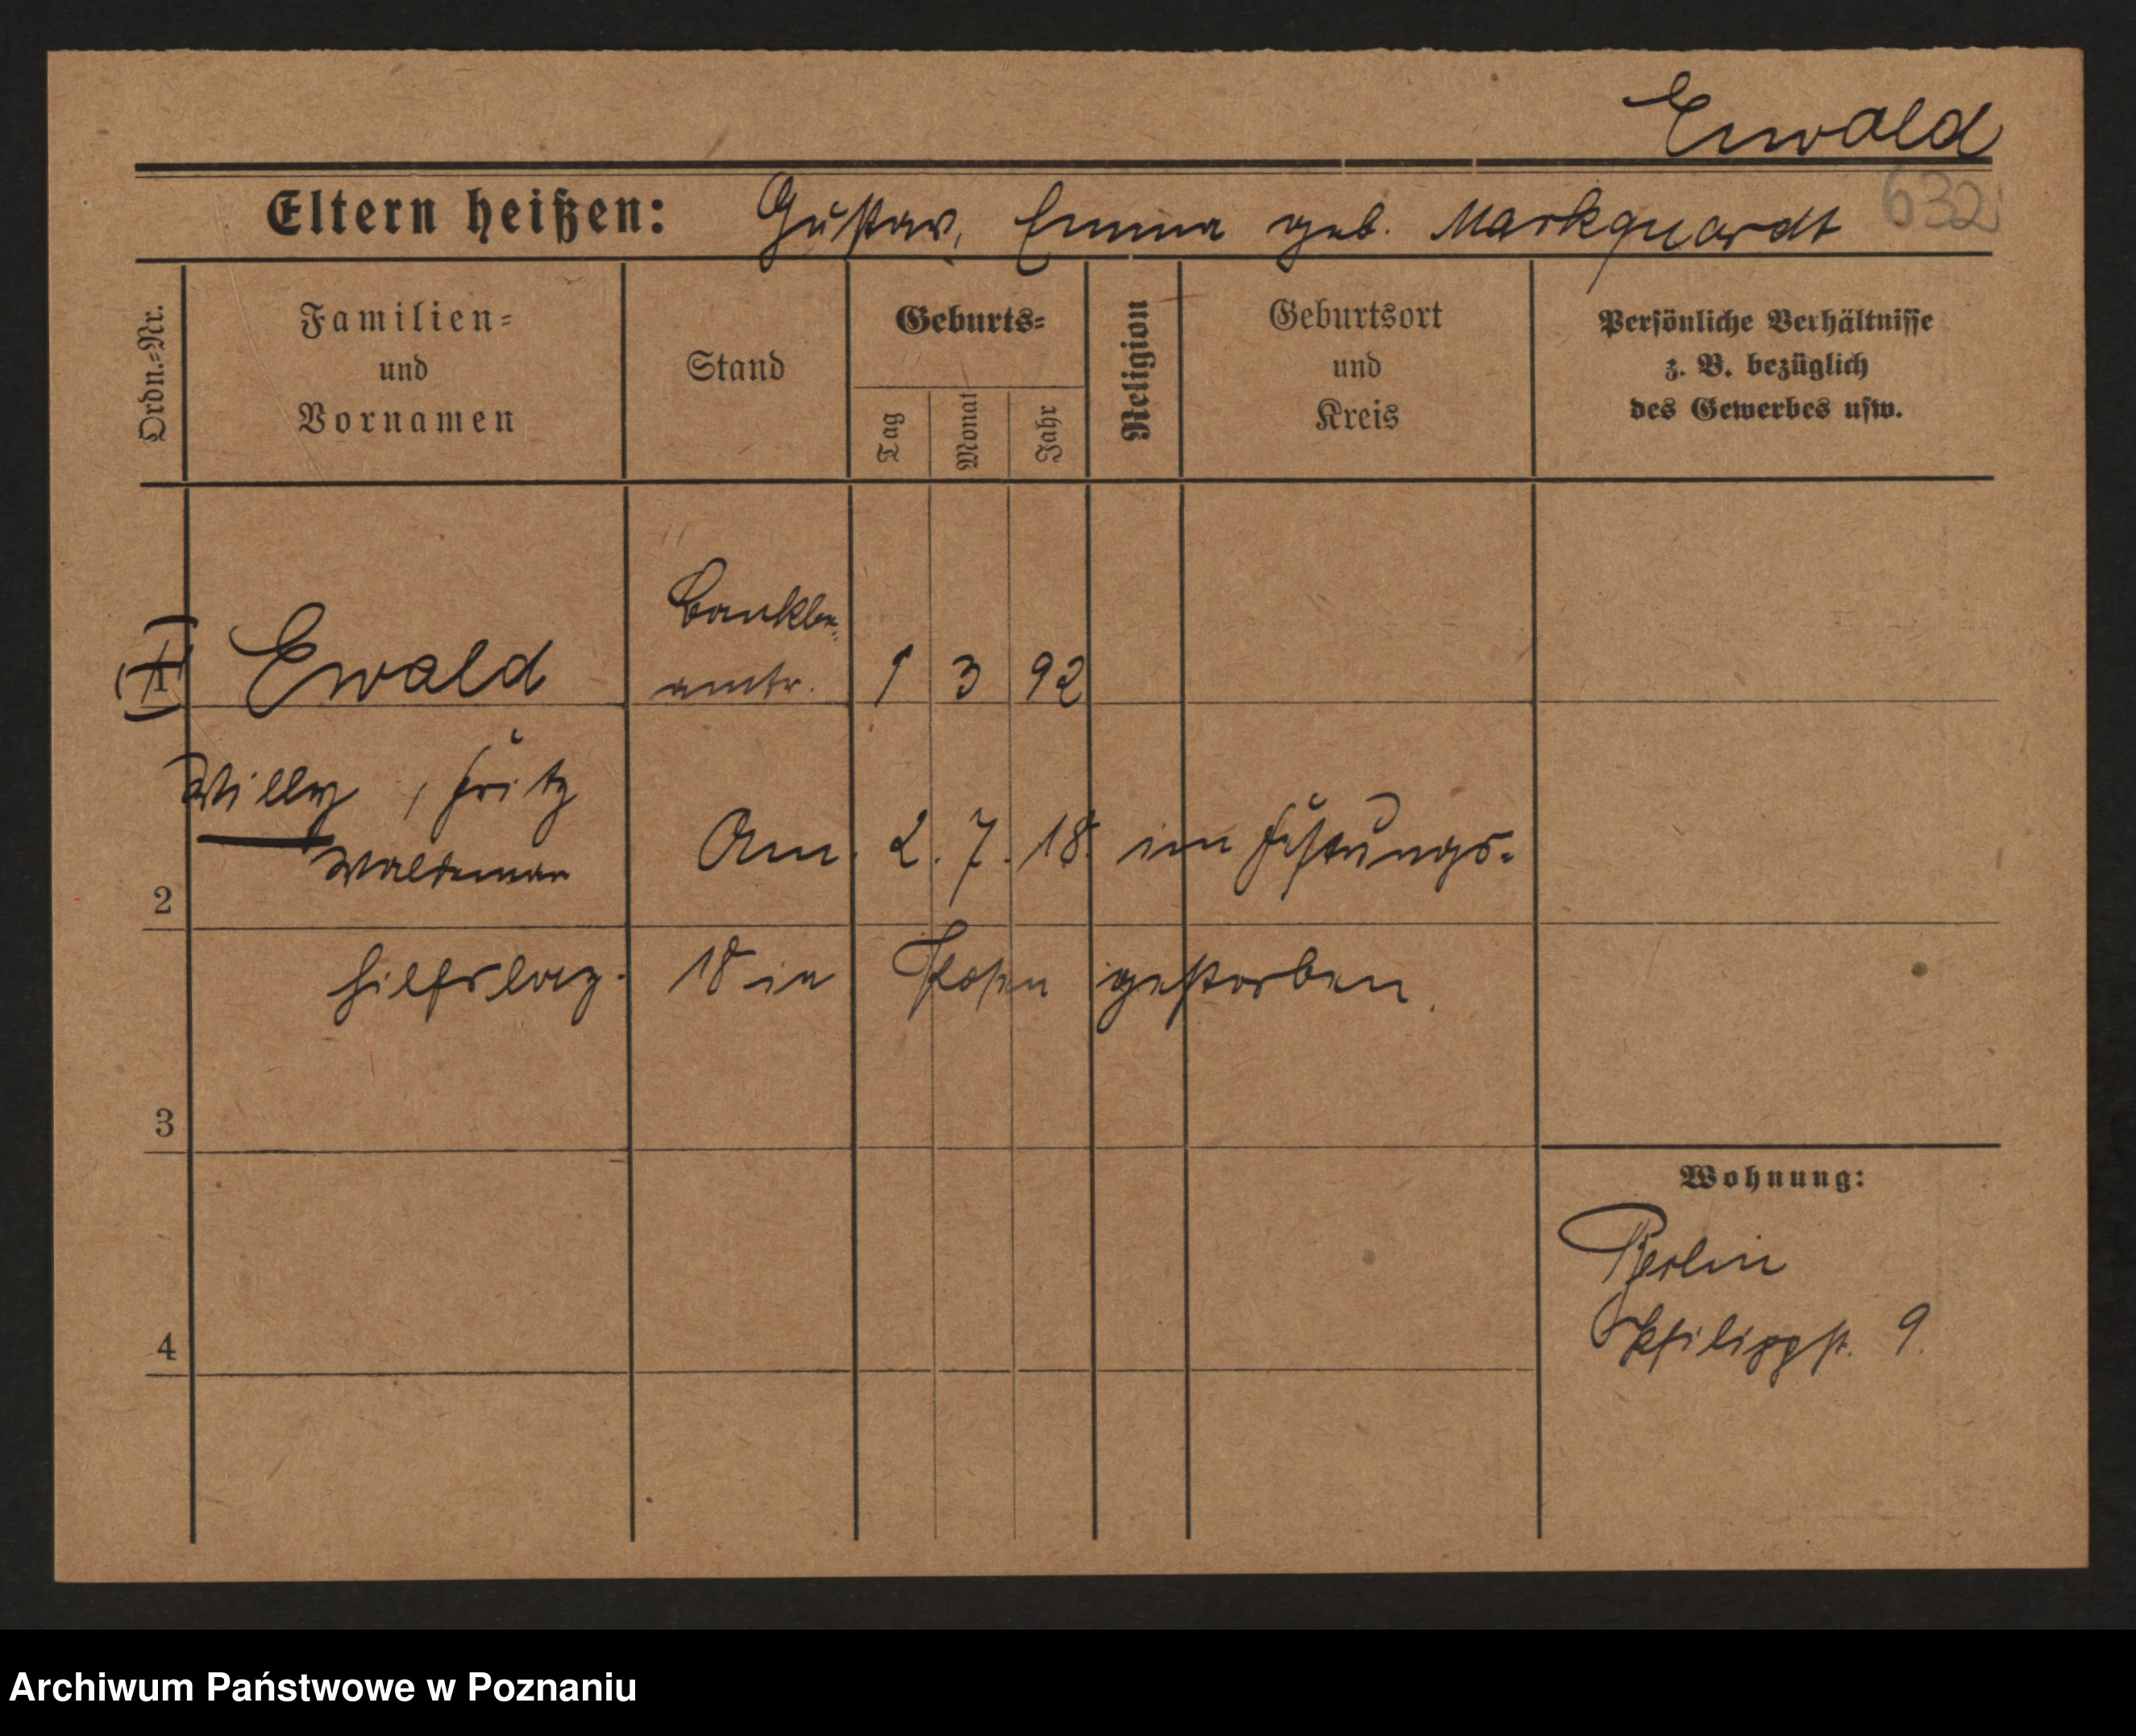 Ewald
632
Eltern heißen: Gustav, Emma geb. Markquardt
Ordn.=Nr.
Familien=
und
Vornamen
Stand
Geburts=
Tag
Monat
Jahr
Religion
Geburtsort
und
Kreis
Persönliche Verhältnisse
z. B. bezüglich
des Gewerbes usw.
Bankbe-
1 Ewald amtr. 1 3 92
Willy, Fritz
Waldemar
2 Am 2. 7. 18. im Festungs-
hilfslaz. 18 in Posen gestorben.
3
Wohnung:
Berlin
Philippst. 9.
4
Archiwum Państwowe w Poznaniu